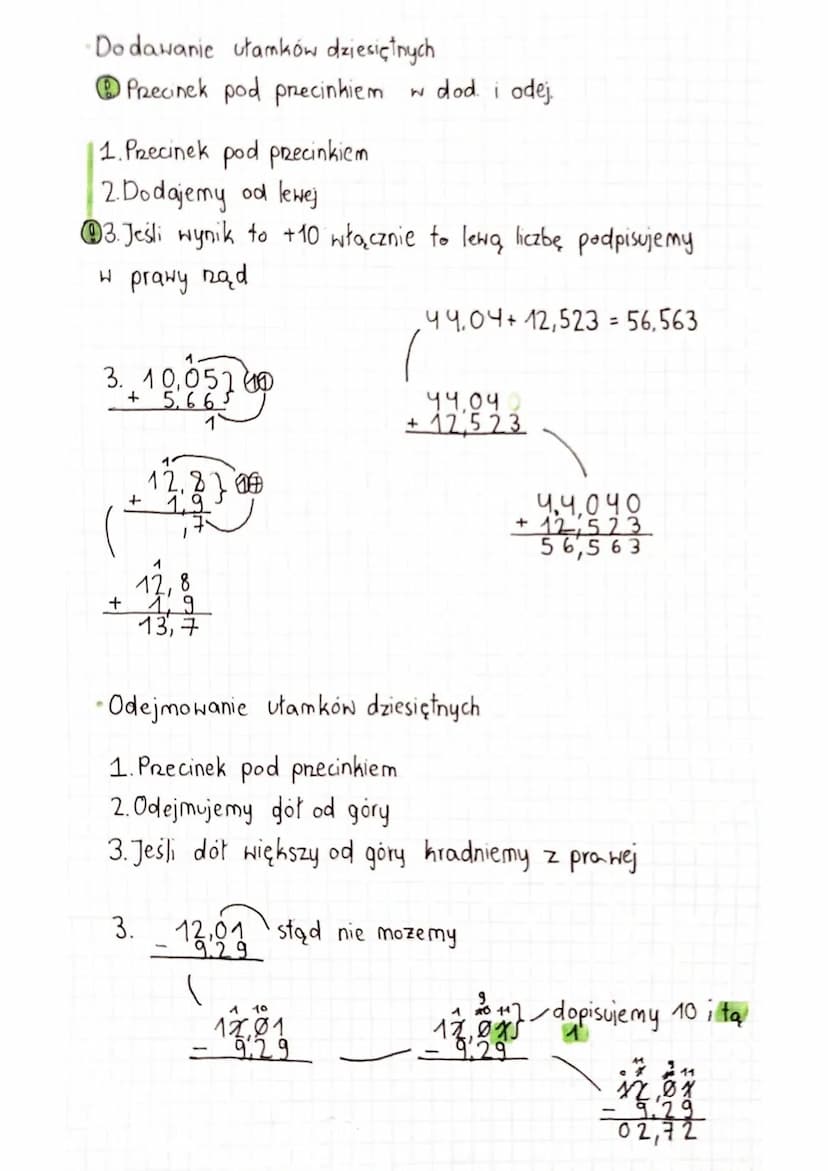 • Dodawanie ułamków dziesiętnych
! Przecinek pod przecinkiem w dod. i odej.
1. Przecinek pod przecinkiem
2. Dodajemy od lewej
! 3. Jeśli wynik to +10 włącznie to lewą liczbę podpisujemy
w prawy rząd
44,04 + 12,523 = 56,563
1
3. 10,05 } 11
+ 5,66
1
44,04 0
+ 12,523
1
12,8 }
+ 1,9
,7
44,040
+ 12,523
56,563
1
12,8
+ 1,9
13,7
• Odejmowanie ułamków dziesiętnych
1. Przecinek pod przecinkiem
2. Odejmujemy dół od góry
3. Jeśli dół większy od góry kradniemy z prawej
3. 12,01 stąd nie możemy
- 9,29
1 10
12,01
- 9,29
9
1 10 11
12,01 } dopisujemy 10 i tą
1
- 9,29
11 9
0 1 11
12,01
- 9,29
02,72